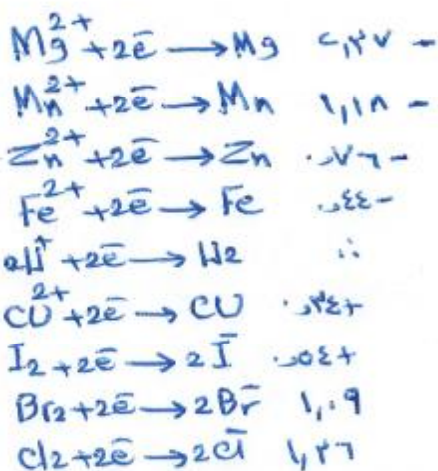 Mg²⁺ + 2e⁻ → Mg ٢,٣٧ -
Mn²⁺ + 2e⁻ → Mn ١,١٨ -
Zn²⁺ + 2e⁻ → Zn ٠,٧٦ -
Fe²⁺ + 2e⁻ → Fe ٠,٤٤ -
2H⁺ + 2e⁻ → H2
CU²⁺ + 2e⁻ → CU ٠,٣٤ +
I2 + 2e⁻ → 2I⁻ ٠,٥٤ +
Br2 + 2e⁻ → 2Br⁻ ١,٠٩
Cl2 + 2e⁻ → 2Cl⁻ ١,٣٦